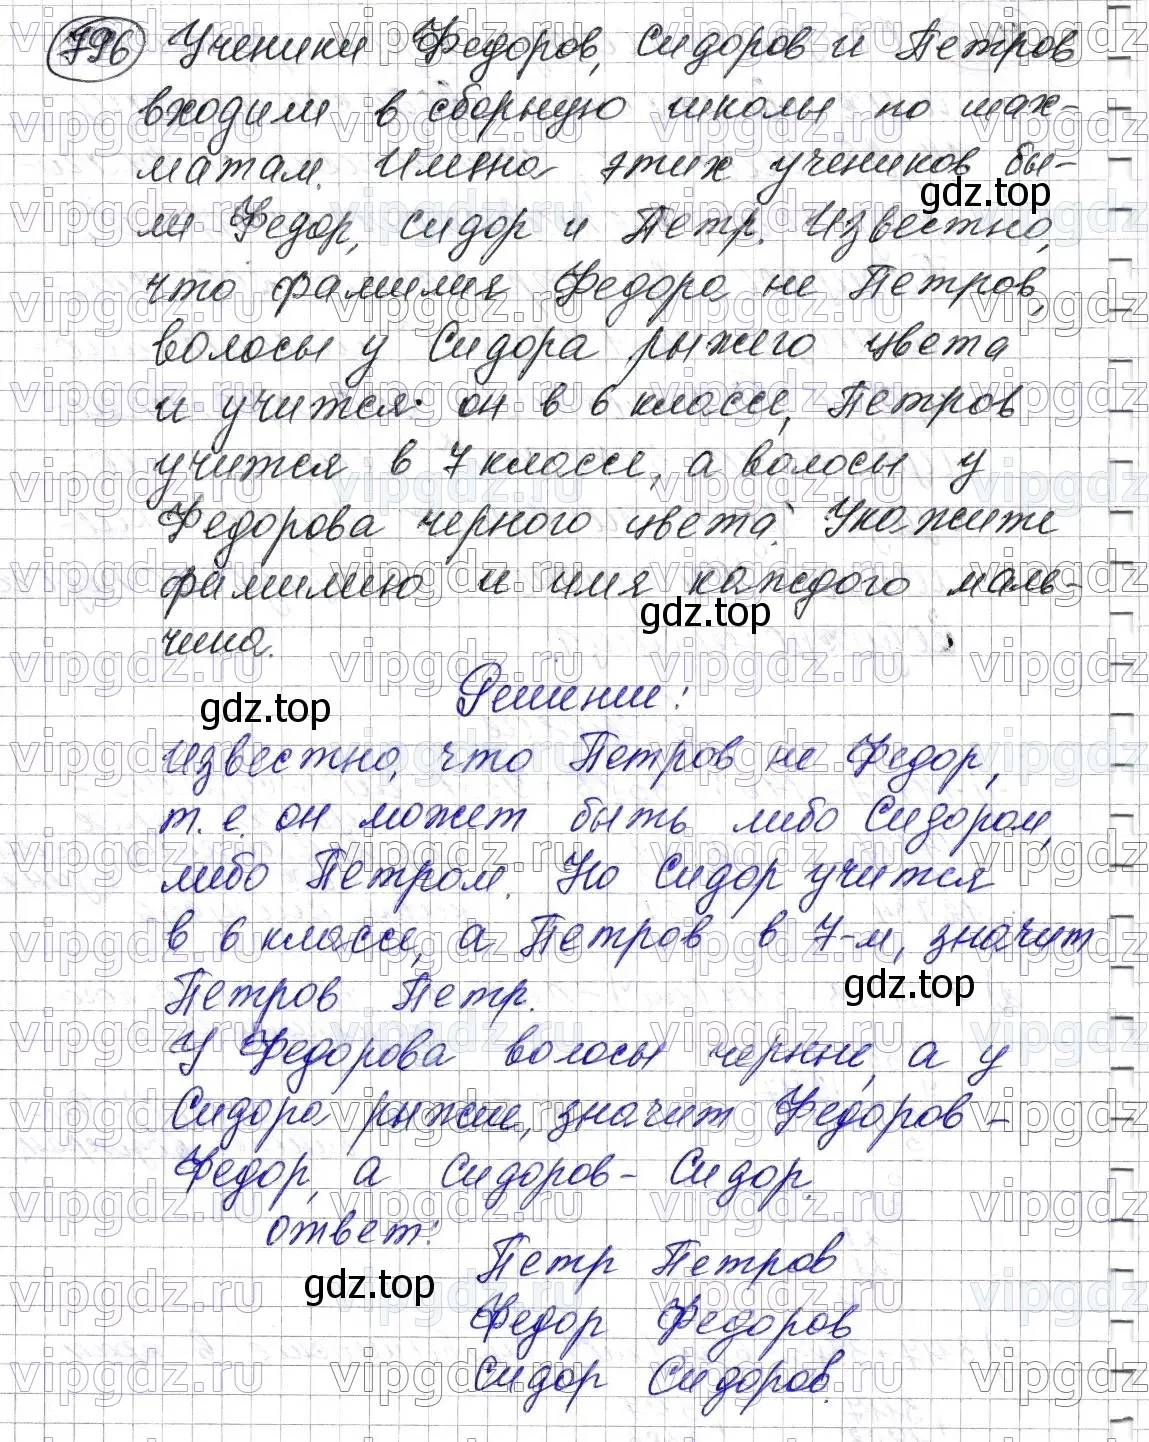 796 Ученики Федоров, Сидоров и Петров
входили в сборную школы по шах-
матам. Имена этих учеников бы-
ли Федор, Сидор и Петр. Известно,
что фамилия Федора не Петров,
волосы у Сидора рыжего цвета
и учится он в 6 классе, Петров
учится в 7 классе, а волосы у
Федорова черного цвета. Укажите
фамилию и имя каждого маль-
чика.
Решение:
Известно, что Петров не Федор,
т. е. он может быть либо Сидором,
либо Петром. Но Сидор учится
в 6 классе, а Петров в 7-м, значит
Петров Петр.
У Федорова волосы черные, а у
Сидора рыжие, значит Федоров -
Федор, а Сидоров - Сидор.
Ответ:
Петр Петров
Федор Федоров
Сидор Сидоров.
gdz.top
gdz.top
gdz.top
gdz.top
gdz.top
vipgdz.ru